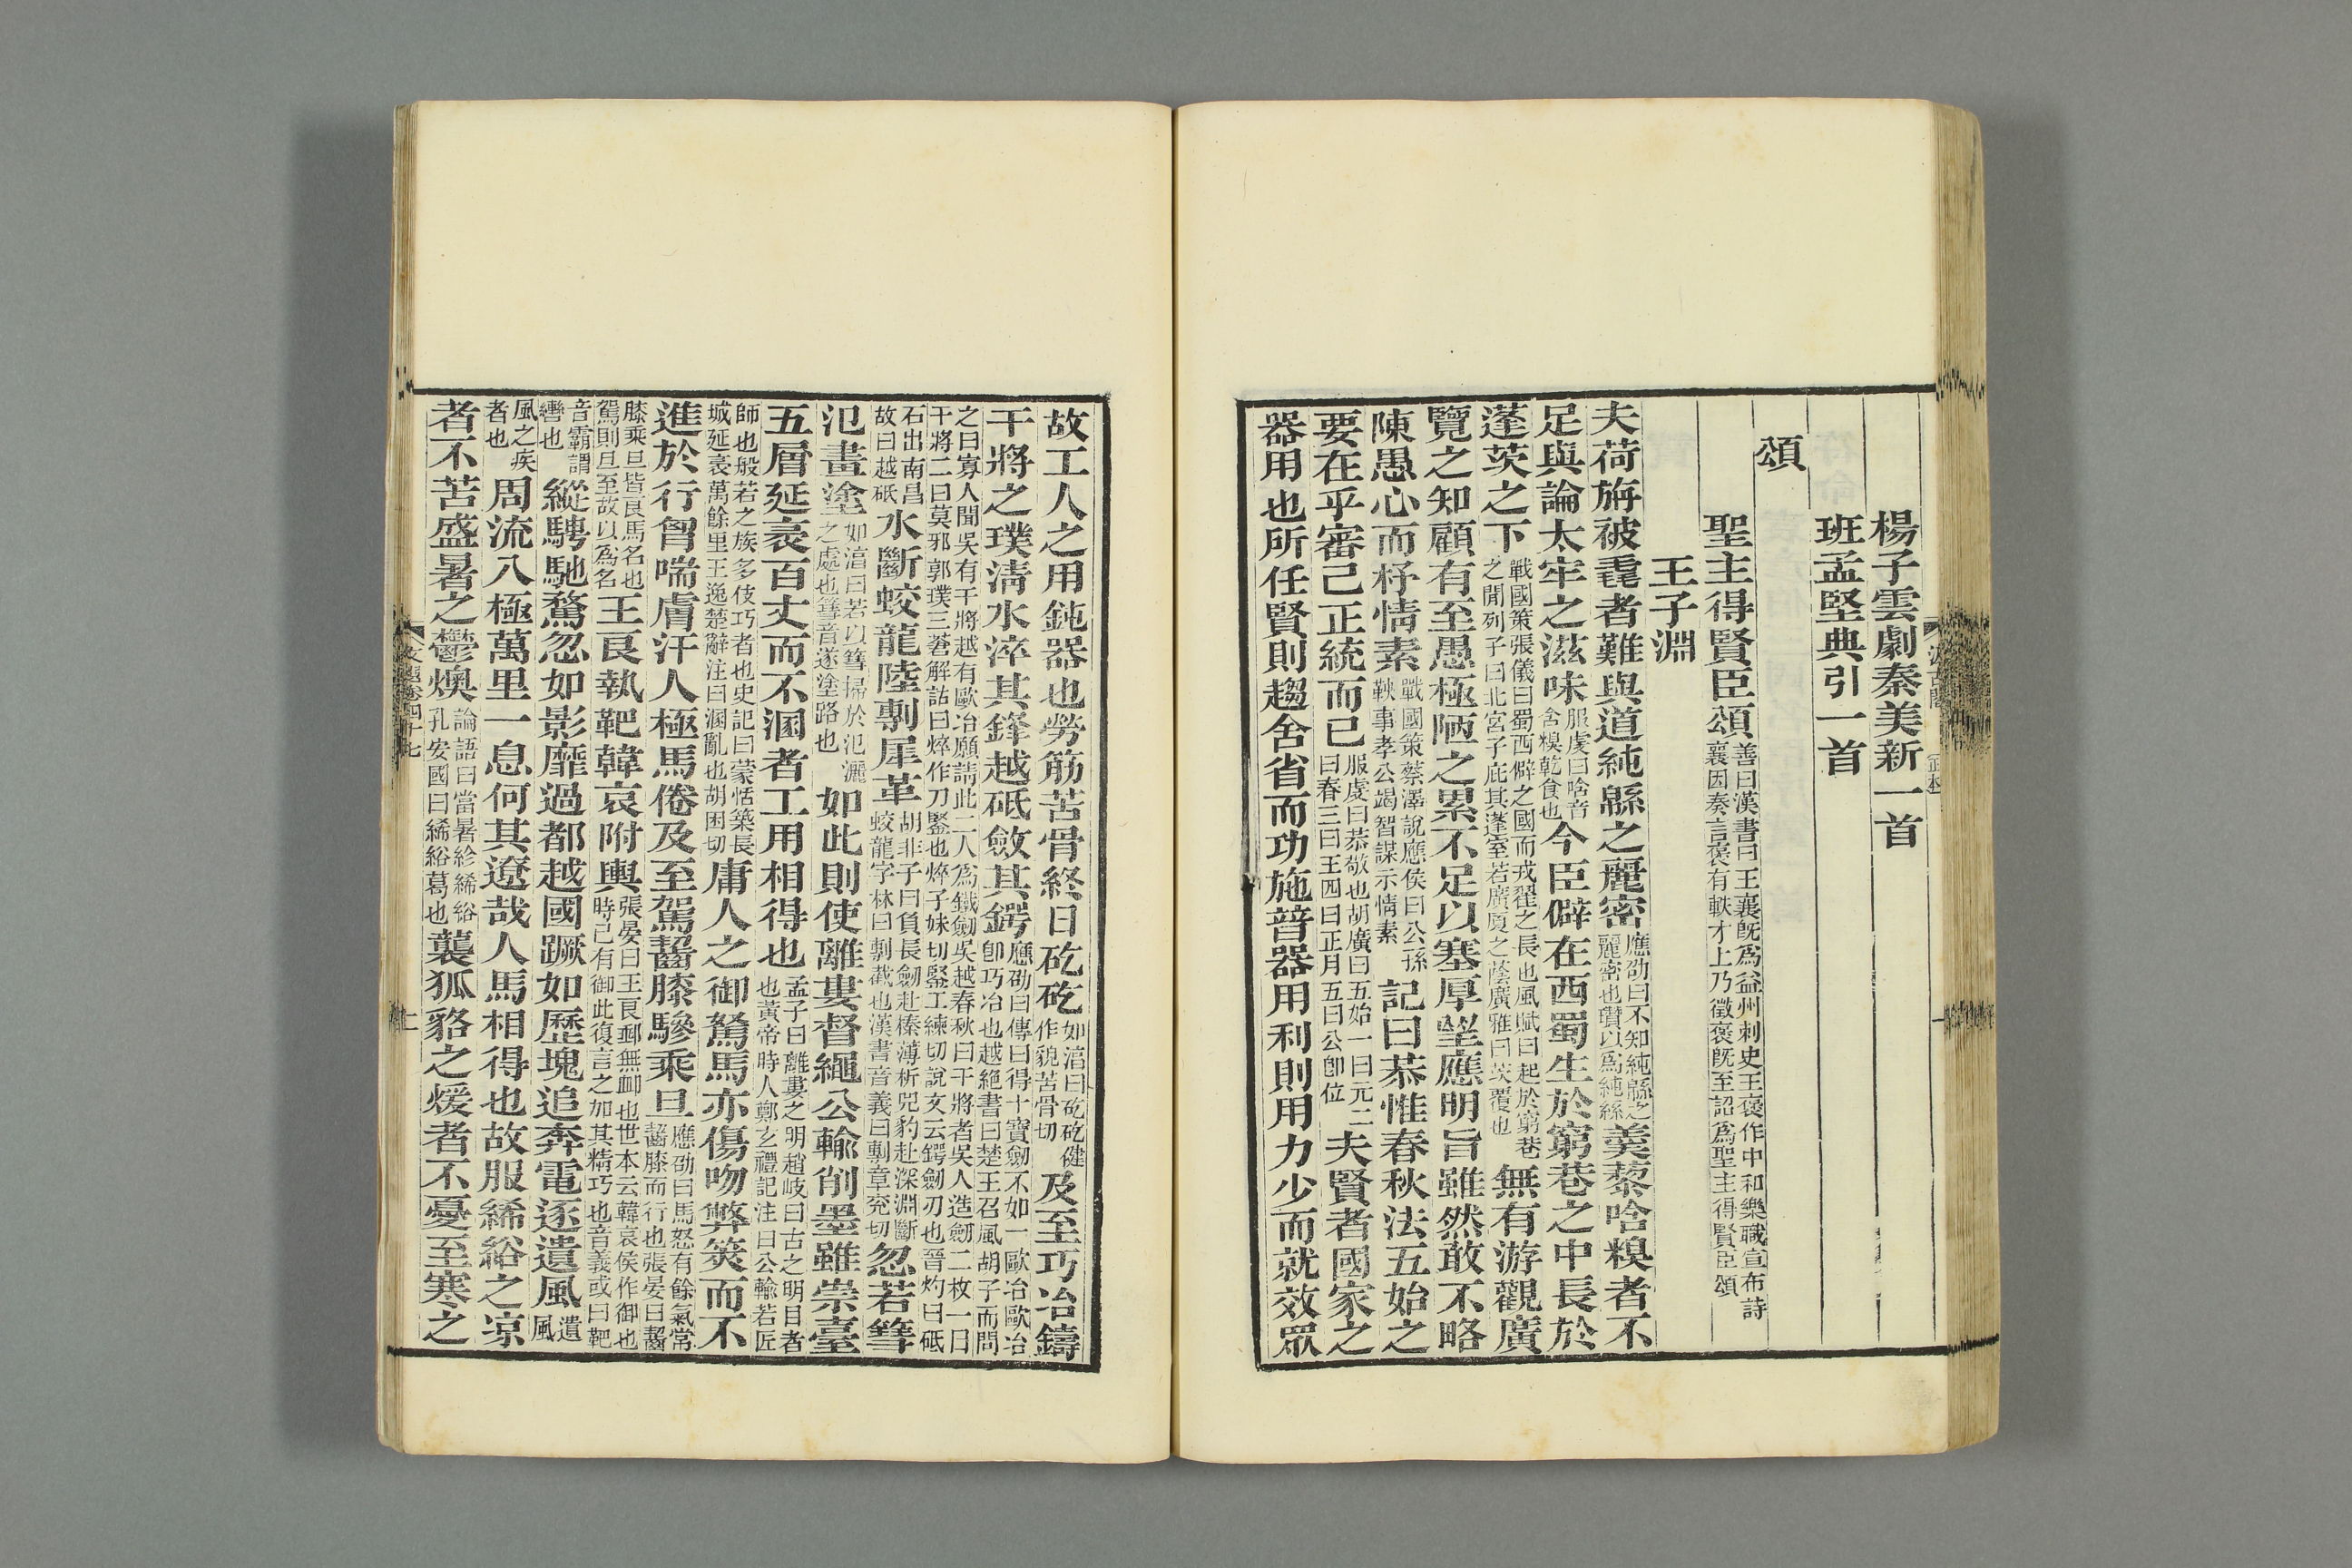 楊子雲劇秦美新一首
班孟堅典引一首
頌
聖主得賢臣頌善曰漢書曰王襄旣爲益州刺史王褒作中和樂職宣布詩
襄因奏言褒有軼才上乃徵褒旣至詔爲聖主得賢臣頌
王子淵
夫荷旃被毳者難與道純緜之麗密應劭曰不知純緜之
麗密也瓚以爲純絲羹藜唅糗者不
足與論太牢之滋味服虔曰唅音
含糗乾食也今臣僻在西蜀生於窮巷之中長於
蓬茨之下戰國策張儀曰蜀西僻之國而戎翟之長也風賦曰起於窮巷
之閒列子曰北宮子庇其蓬室若廣厦之蔭廣雅曰茨覆也無有游觀廣
覽之知顧有至愚極陋之累不足以塞厚望應明旨雖然敢不略
陳愚心而杼情素戰國策蔡澤說應侯曰公孫
鞅事孝公竭智謀示情素記曰恭惟春秋法五始之
要在乎審己正統而已服虔曰恭敬也胡廣曰五始一曰元二
曰春三曰王四曰正月五曰公卽位夫賢者國家之
器用也所任賢則趨舍省而功施普器用利則用力少而就效眾
故工人之用鈍器也勞筋苦骨終日矻矻如淳曰矻矻健
作貌苦骨切及至巧冶鑄
干將之璞淸水淬其鋒越砥斂其鍔應劭曰傳曰得十寶劒不如一歐冶歐冶
卽巧冶也越絕書曰楚王召風胡子而問
之曰寡人聞吳有干將越有歐冶願請此二人爲鐵劒吳越春秋曰干將者吳人造劒二枚一曰
干將二曰莫邪郭璞三蒼解詁曰焠作刀鋻也焠子妹切鋻工練切說文云鍔劒刃也晉灼曰砥
石出南昌
故曰越砥水斷蛟龍陸剸犀革胡非子曰負長劒赴榛薄析兕豹赴深淵斷
蛟龍字林曰剸截也漢書音義曰剸章兖切忽若篲
氾畫塗如淳曰若以篲掃於氾灑
之處也篲音遂塗路也如此則使離婁督繩公輸削墨雖崇臺
五層延袤百丈而不溷者工用相得也孟子曰離婁之明趙岐曰古之明目者
也黃帝時人鄭玄禮記注曰公輸若匠
師也般若之族多伎巧者也史記曰蒙恬築長
城延袤萬餘里王逸楚辭注曰溷亂也胡困切庸人之御駑馬亦傷吻弊筴而不
進於行胷喘膚汗人極馬倦及至駕齧膝驂乘旦應劭曰馬怒有餘氣常
齧膝而行也張晏曰齧
膝乘旦皆良馬名也
駕則旦至故以爲名王良執靶韓哀附輿張晏曰王良郵無卹也世本云韓哀侯作御也
時已有御此復言之加其精巧也音義或曰靶
音霸謂
轡也縱騁馳騖忽如影靡過都越國蹶如歷塊追奔電逐遺風遺
風
風之疾
者也周流八極萬里一息何其遼哉人馬相得也故服絺綌之凉
者不苦盛暑之鬱燠論語曰當暑袗絺綌
孔安國曰絺綌葛也襲狐貉之煖者不憂至寒之